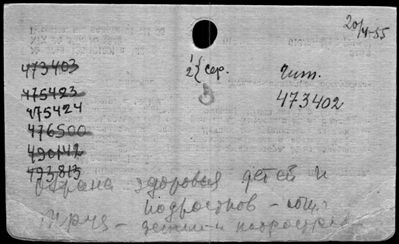 20/4-55
473403
1/2 { сер.
чит.
475423
473402
475424
476500
490142
493813
охрана здоровья детей и
подростков - общ.
детей и подростков